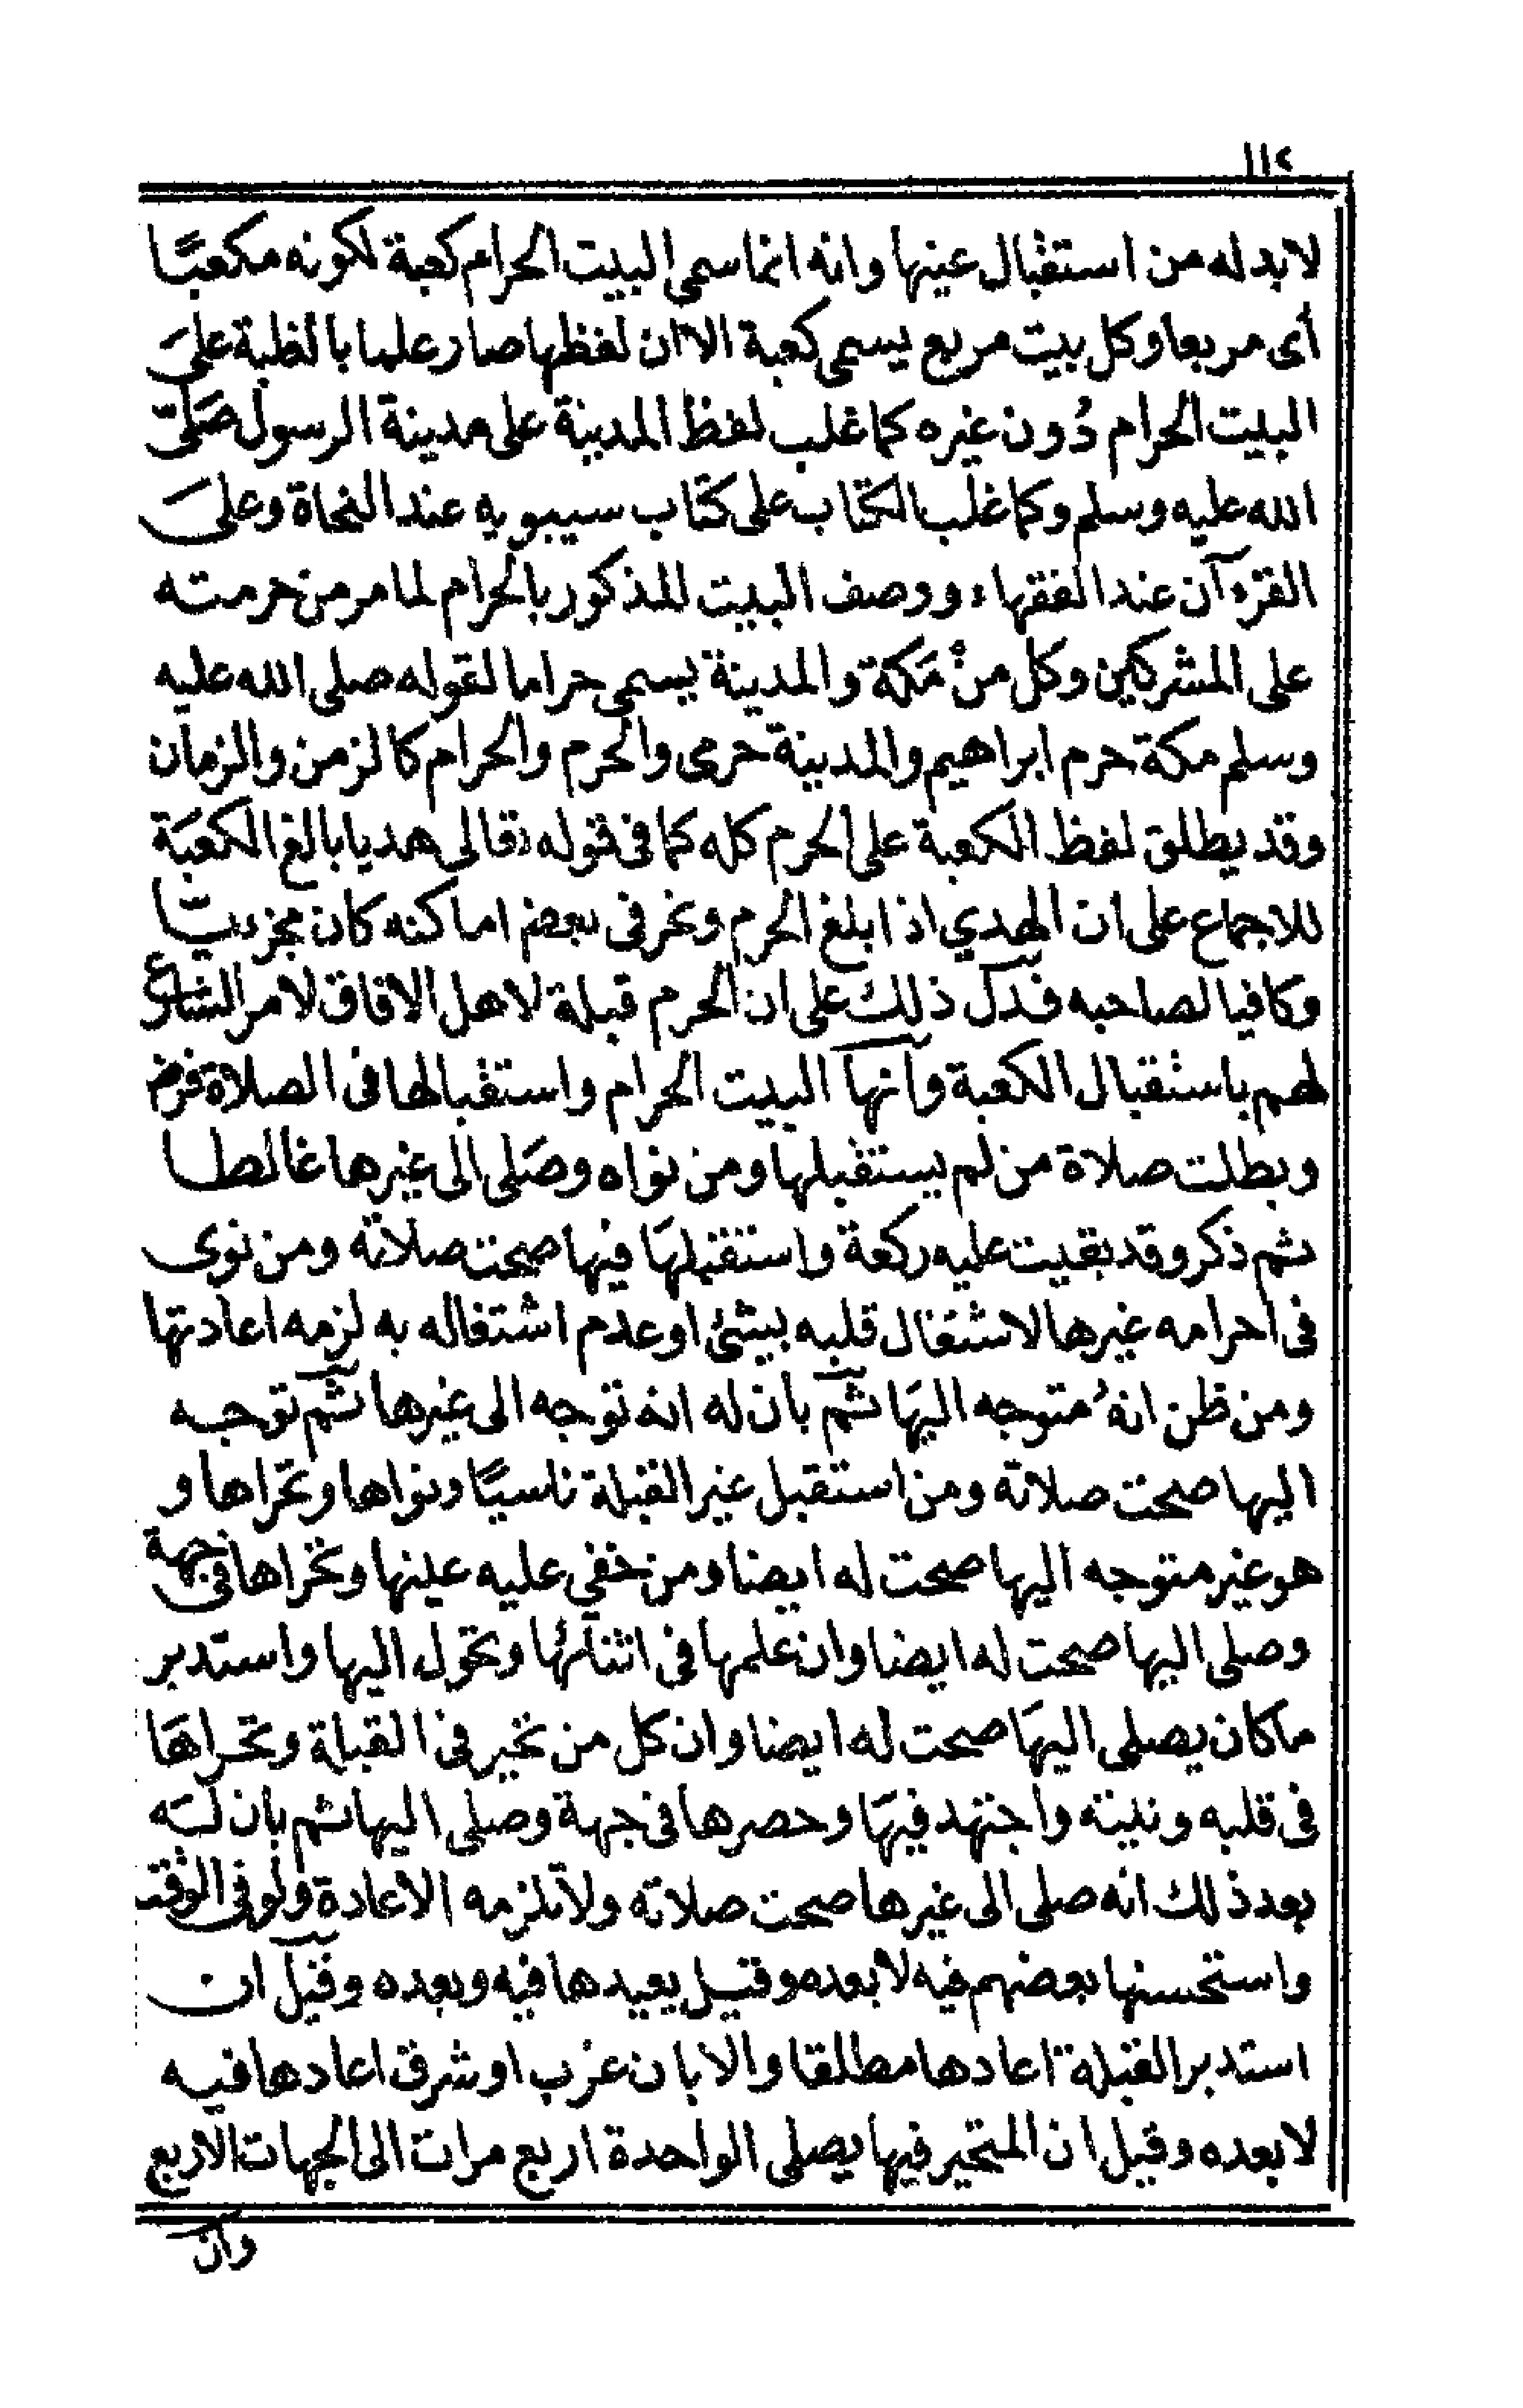 ١١٢
لابد له من استقبال عينها وانه انما سمي البيت الحرام كعبة لكونه مكعبًا
أى مربعا وكل بيت مربع يسمى كعبة الا ان لفظها صار علما بالغلبة على
البيت الحرام دُون غيره كما غلب لفظ المدينة على مدينة الرسول صَلىّ
الله عليه وسلم وكما غلب الكتاب على كتاب سيبويه عند النحاة وعلىَ
القرءآن عند الفقهاء ووصف البيت المذكور بالحرام لما مر من حرمته
على المشركين وكل منْ مَكة والمدينة يسمى حراما لقوله صلى الله عليه
وسلم مكة حرم ابراهيم والمدينة حرمى والحرم والحرام كالزمن والزمان
وقد يطلق لفظ الكعبة على الحرم كله كما فى قوله تعالى هديا بالغ الكعبَة
للاجماع على ان الهدي اذا بلغ الحرم ونحر فى بعض اماكنه كان مجزءيّا
وكافيا لصاحبه فدل ذلك على ان الحرم قبلة لاهل الافاق لامر الشارع
لهم باستقبال الكعبة وانها البيت الحرام واستقبالها فى الصلاة فرض
وبطلت صلاة من لم يستقبلها ومن نواه وصَلى الى غيرها غالطا
ثم ذكر وقد بقيت عليه ركعة واستقبلهَا فيها صحت صلاته ومن نوى
فى احرامه غيرها لاشتغال قلبه بيشئ او عدم اشتغاله به لزمه اعادتها
ومن ظن انهُ متوجه اليهَا ثم بان له انه توجه الى غيرها ثم توجه
اليها صحت صلاته ومن استقبل غير القبلة ناسيًا ونواها وتحراها و
هو غير متوجه اليها صحت له ايضا ومن خفي عليه عينها وتحراها فى جهة
وصلى اليها صحت له ايضا وان علمها فى اثنائها وتحول اليها واستدبر
ما كان يصلى اليهَا صحت له ايضا وان كل من تحير فى القبلة وتحراهَا
فى قلبه ونيته واجتهد فيهَا وحصرها فى جهة وصلى اليها ثم بان لـه
بعد ذلك انه صلى الى غيرها صحت صلاته ولا تلزمه الاعادة ولو فى الوقت
واستحسنها بعضهم فيه لا بعده وقيل يعيدها فيه وبعده وقيل ان
استدبر القبلة اعادها مطلقا والا بان غرب او شرق اعادها فيه
لا بعده وقيل ان المتحير فيها يصلى الواحدة اربع مرات الى الجهات الاربع
وان